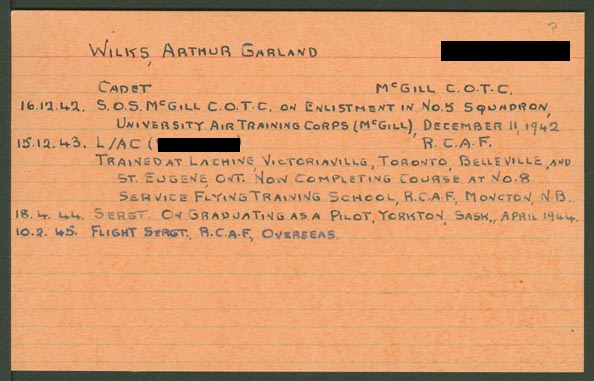 ?
WILKS, ARTHUR GARLAND
CADET McGILL C.O.T.C.
16.12.42. S.O.S. McGILL C.O.T.C. ON ENLISTMENT IN NO.5 SQUADRON,
UNIVERSITY AIR TRAINING CORPS (McGILL), DECEMBER 11, 1942
15.12.43. L/AC ( R.C.A.F.
TRAINED AT LACHINE, VICTORIAVILLE, TORONTO, BELLEVILLE, AND
ST. EUGENE, ONT. NOW COMPLETING COURSE AT NO.8
SERVICE FLYING TRAINING SCHOOL, R.C.A.F., MONCTON, N.B.
18.4.44. SERGT. ON GRADUATING AS A PILOT, YORKTON, SASK., APRIL 1944.
10.2.45. FLIGHT SERGT., R.C.A.F., OVERSEAS.